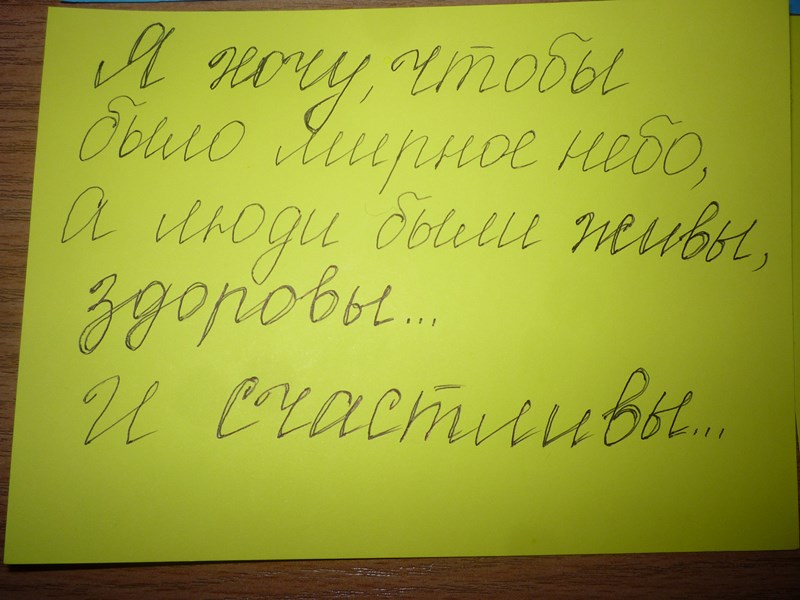 Я хочу, чтобы
было мирное небо,
а люди были живы,
здоровы...
И счастливы...